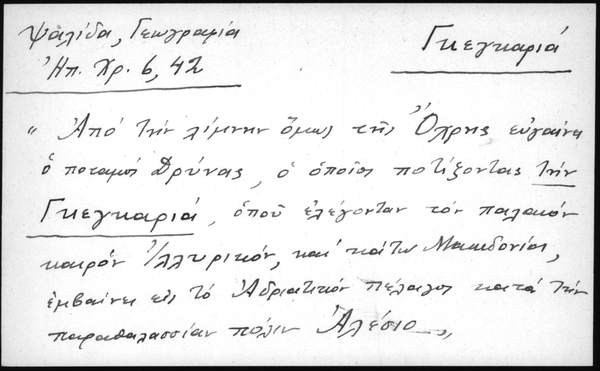 Ψαλίδα, Γεωγραφία
Ἠπ. Χρ. 6, 42
Γκεγκαριά
" Ἀπό τήν λίμνην ὅμως τῆς Ὄχρης εὐγαίνει
ὁ ποταμός Δρύνας, ὁ ὁποῖος ποτίζοντας τήν
Γκεγκαριά, ὁποῦ ἐλέγονταν τόν παλαιόν
καιρόν Ἰλλυρικόν, καί κάτω Μακεδονίαν,
ἐμβαίνει εἰς τό Ἀδριατικόν πέλαγος κατά τήν
παραθαλασσίαν πόλιν Ἀλέσιο „